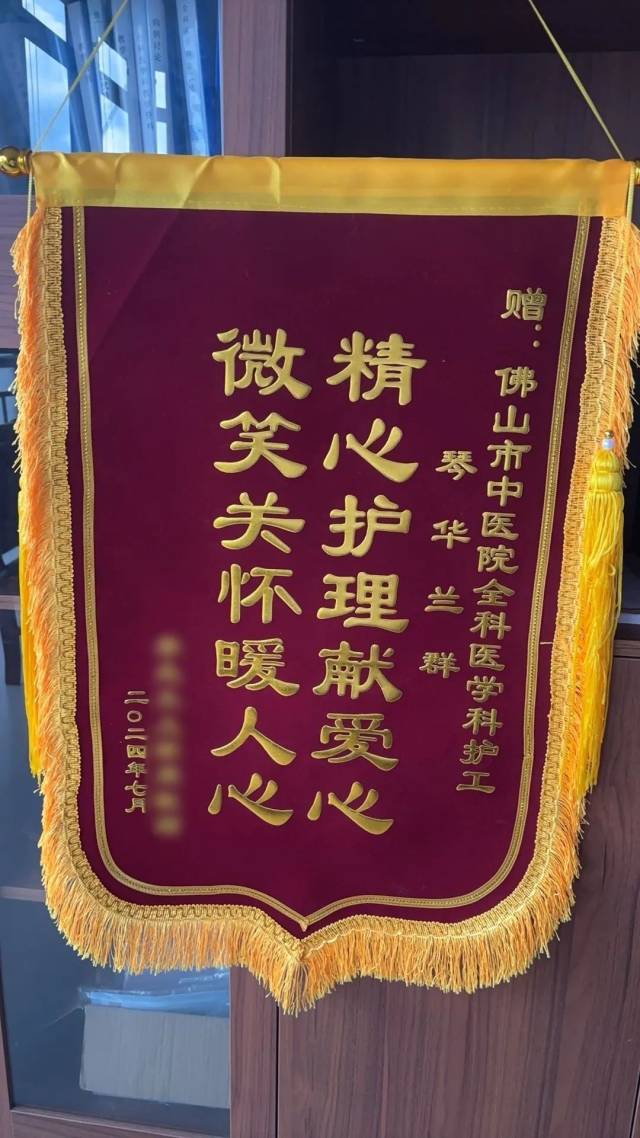 赠：佛山市中医院全科医学科护工
琴华兰群
精心护理献爱心
微笑关怀暖人心
二〇二四年七月